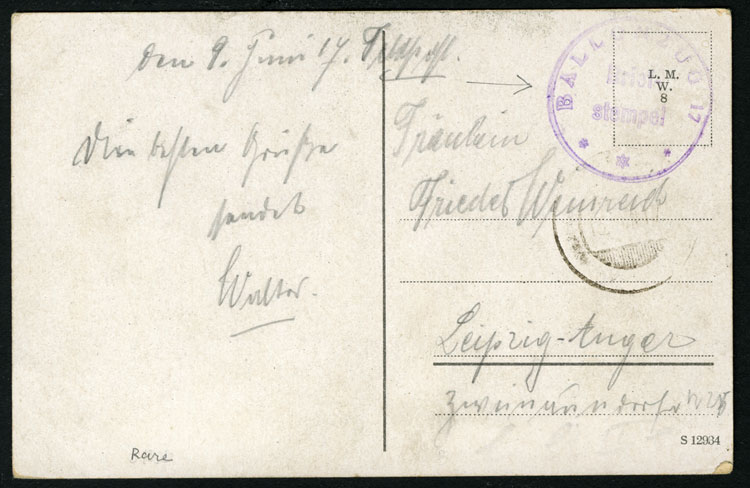 den 9. Juni 17. Feldpost.
Die besten Grüße
sendet
Walter.
Rare
BALL ZUG 17
stempel
L. M.
W.
8
Fräulein
Frieda Weinreich
Leipzig-Anger
Zweinaundorfer
S 12934